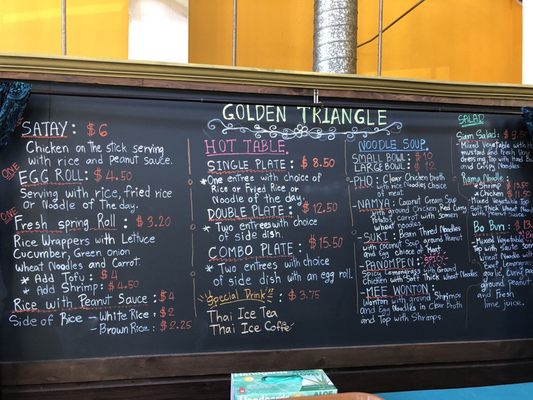 GOLDEN TRIANGLE
SATAY: $6
Chicken on the stick serving
with rice and peanut sauce.
EGG ROLL: $4.50
Serving with rice, fried rice
or Noodle of The day.
Fresh spring Roll: $3.20
Rice Wrappers with Lettuce
Cucumber, Green onion
Wheat Noodles and Carrot.
* Add Tofu: $4
* Add Shrimp: $4.50
Rice with Peanut Sauce: $4
Side of Rice - White Rice: $2
- Brown Rice: $2.25
HOT TABLE.
SINGLE PLATE: $8.50
* One entree with choice of
Rice or Fried Rice or
Noodle of the day.
DOUBLE PLATE: $12.50
* Two entrees with choice
of side dish.
COMBO PLATE: $15.50
* Two entrees with choice
of side dish with an egg roll.
Special Drink: $3.75
Thai Ice Tea
Thai Ice Coffe
NOODLE SOUP.
SMALL BOWL: $10
LARGE BOWL: $12
- PHO: Clear Chicken broth
with rice Noodles choice
- NAMYA: Coconut Cream Soup
with ground Chicken Red Curry
Carrot with somen
wheat noodles.
- SUKI: Bean Thread Noodles
with coconut Soup ground Peanut
and Egg choice of Meat.
- PANOMPEN:
Spicy Lemongrass with ground
Chicken with Soft Thick Wheat Noodles
- MEE WONTON:
Wonton with ground Shrimps
and Egg Noodles in Clear Broth
and Top with Shrimps.
SALAD
Siam Salad: $9.50
Mixed Vegetable with
mustard and fresh
dressing Top with
and Egg
Rama Noodle:
* Shrimp $13.50
* Chicken $11.50
Mixed Vegetable Top
Soft Thick Wheat
Peanut Sauce.
Bo Bun: $13
Mixed Vegetable
Noodles Top with
and Lemongrass
garlic
ground peanut
and Fresh
lime juice.